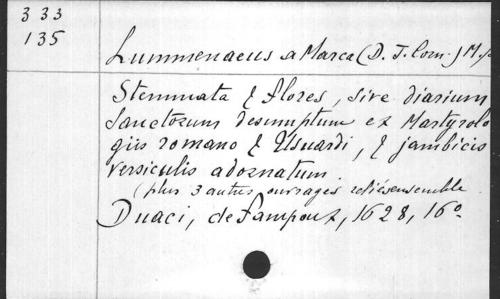 333
135
Lummenaeus a Marca (D. J. Corn.) M.
Stemmata & flores, sive diarium
Sanctorum desumptum ex Martyrolo
giis romano & Usuardi, & jambicis
versiculis adornatum.
(plus 3 autres ouvrages reliés ensemble
Duaci, de Fampoux, 1628, 16º